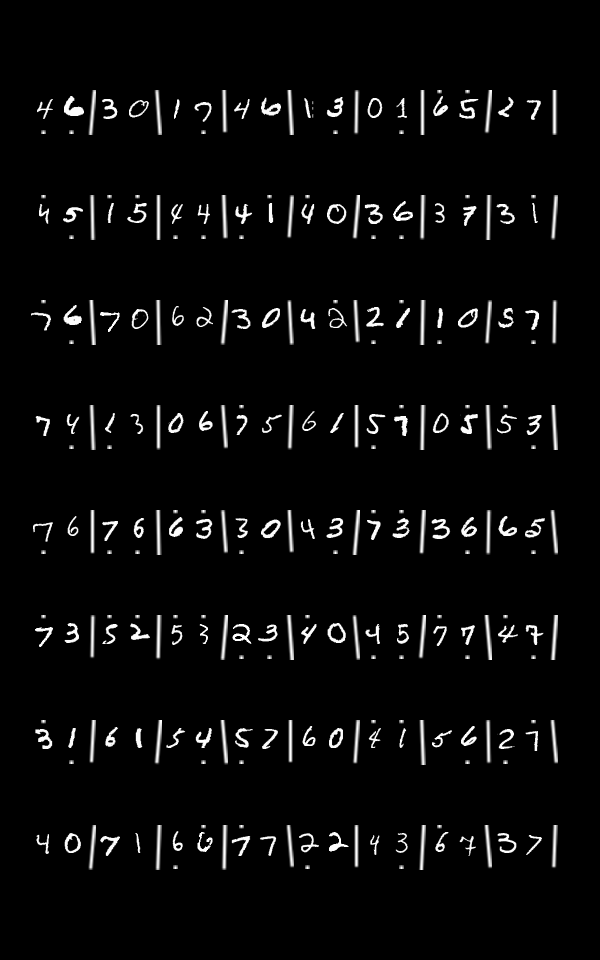 4 6 | 3 0 | 1 7 | 4 6 | 1 3 | 0 1 | 6 5 | 2 7 |
4 5 | 1 5 | 4 4 | 4 1 | 4 0 | 3 6 | 3 7 | 3 1 |
7 6 | 7 0 | 6 2 | 3 0 | 4 2 | 2 1 | 1 0 | 5 7 |
7 4 | 1 3 | 0 6 | 7 5 | 6 1 | 5 7 | 0 5 | 5 3 |
7 6 | 7 6 | 6 3 | 3 0 | 4 3 | 7 3 | 3 6 | 6 5 |
7 3 | 5 2 | 5 3 | 2 3 | 4 0 | 4 5 | 7 7 | 4 7 |
3 1 | 6 1 | 5 4 | 5 7 | 6 0 | 4 1 | 5 6 | 2 7 |
4 0 | 7 1 | 6 6 | 7 7 | 2 2 | 4 3 | 6 7 | 3 7 |